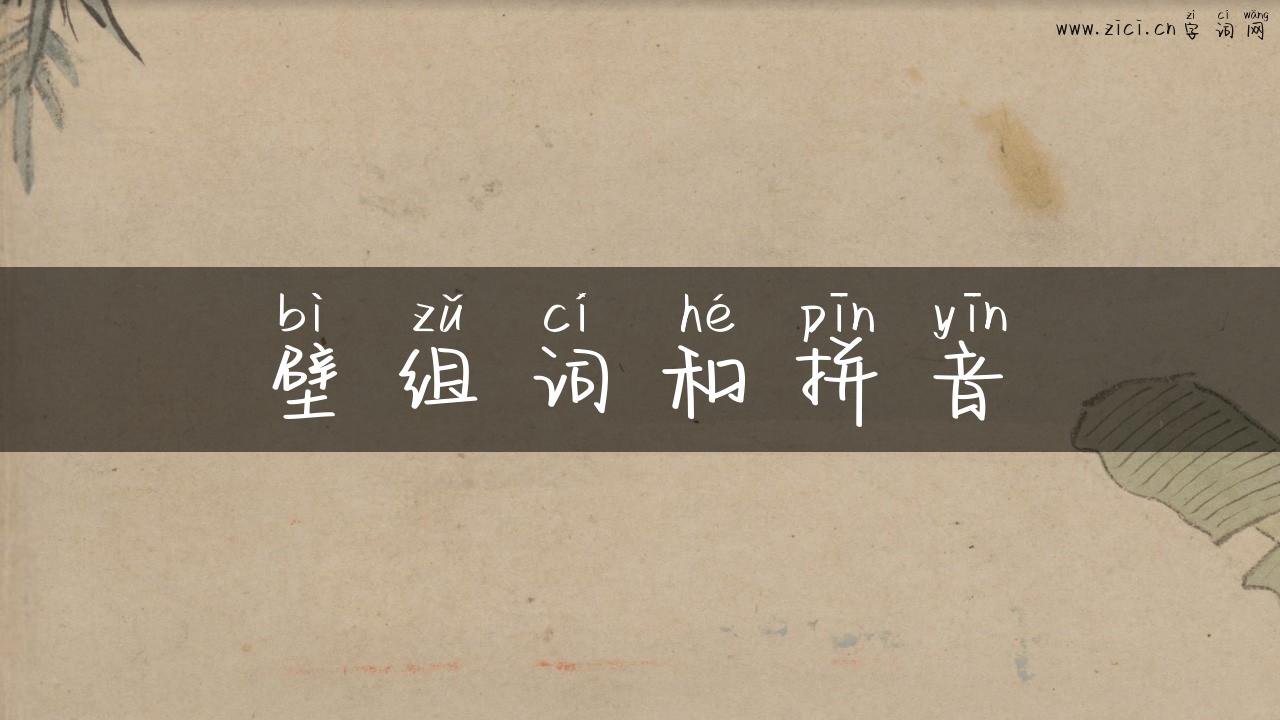 zì cí wǎng
www.zici.cn 字词网
bì zǔ cí hé pīn yīn
壁组词和拼音